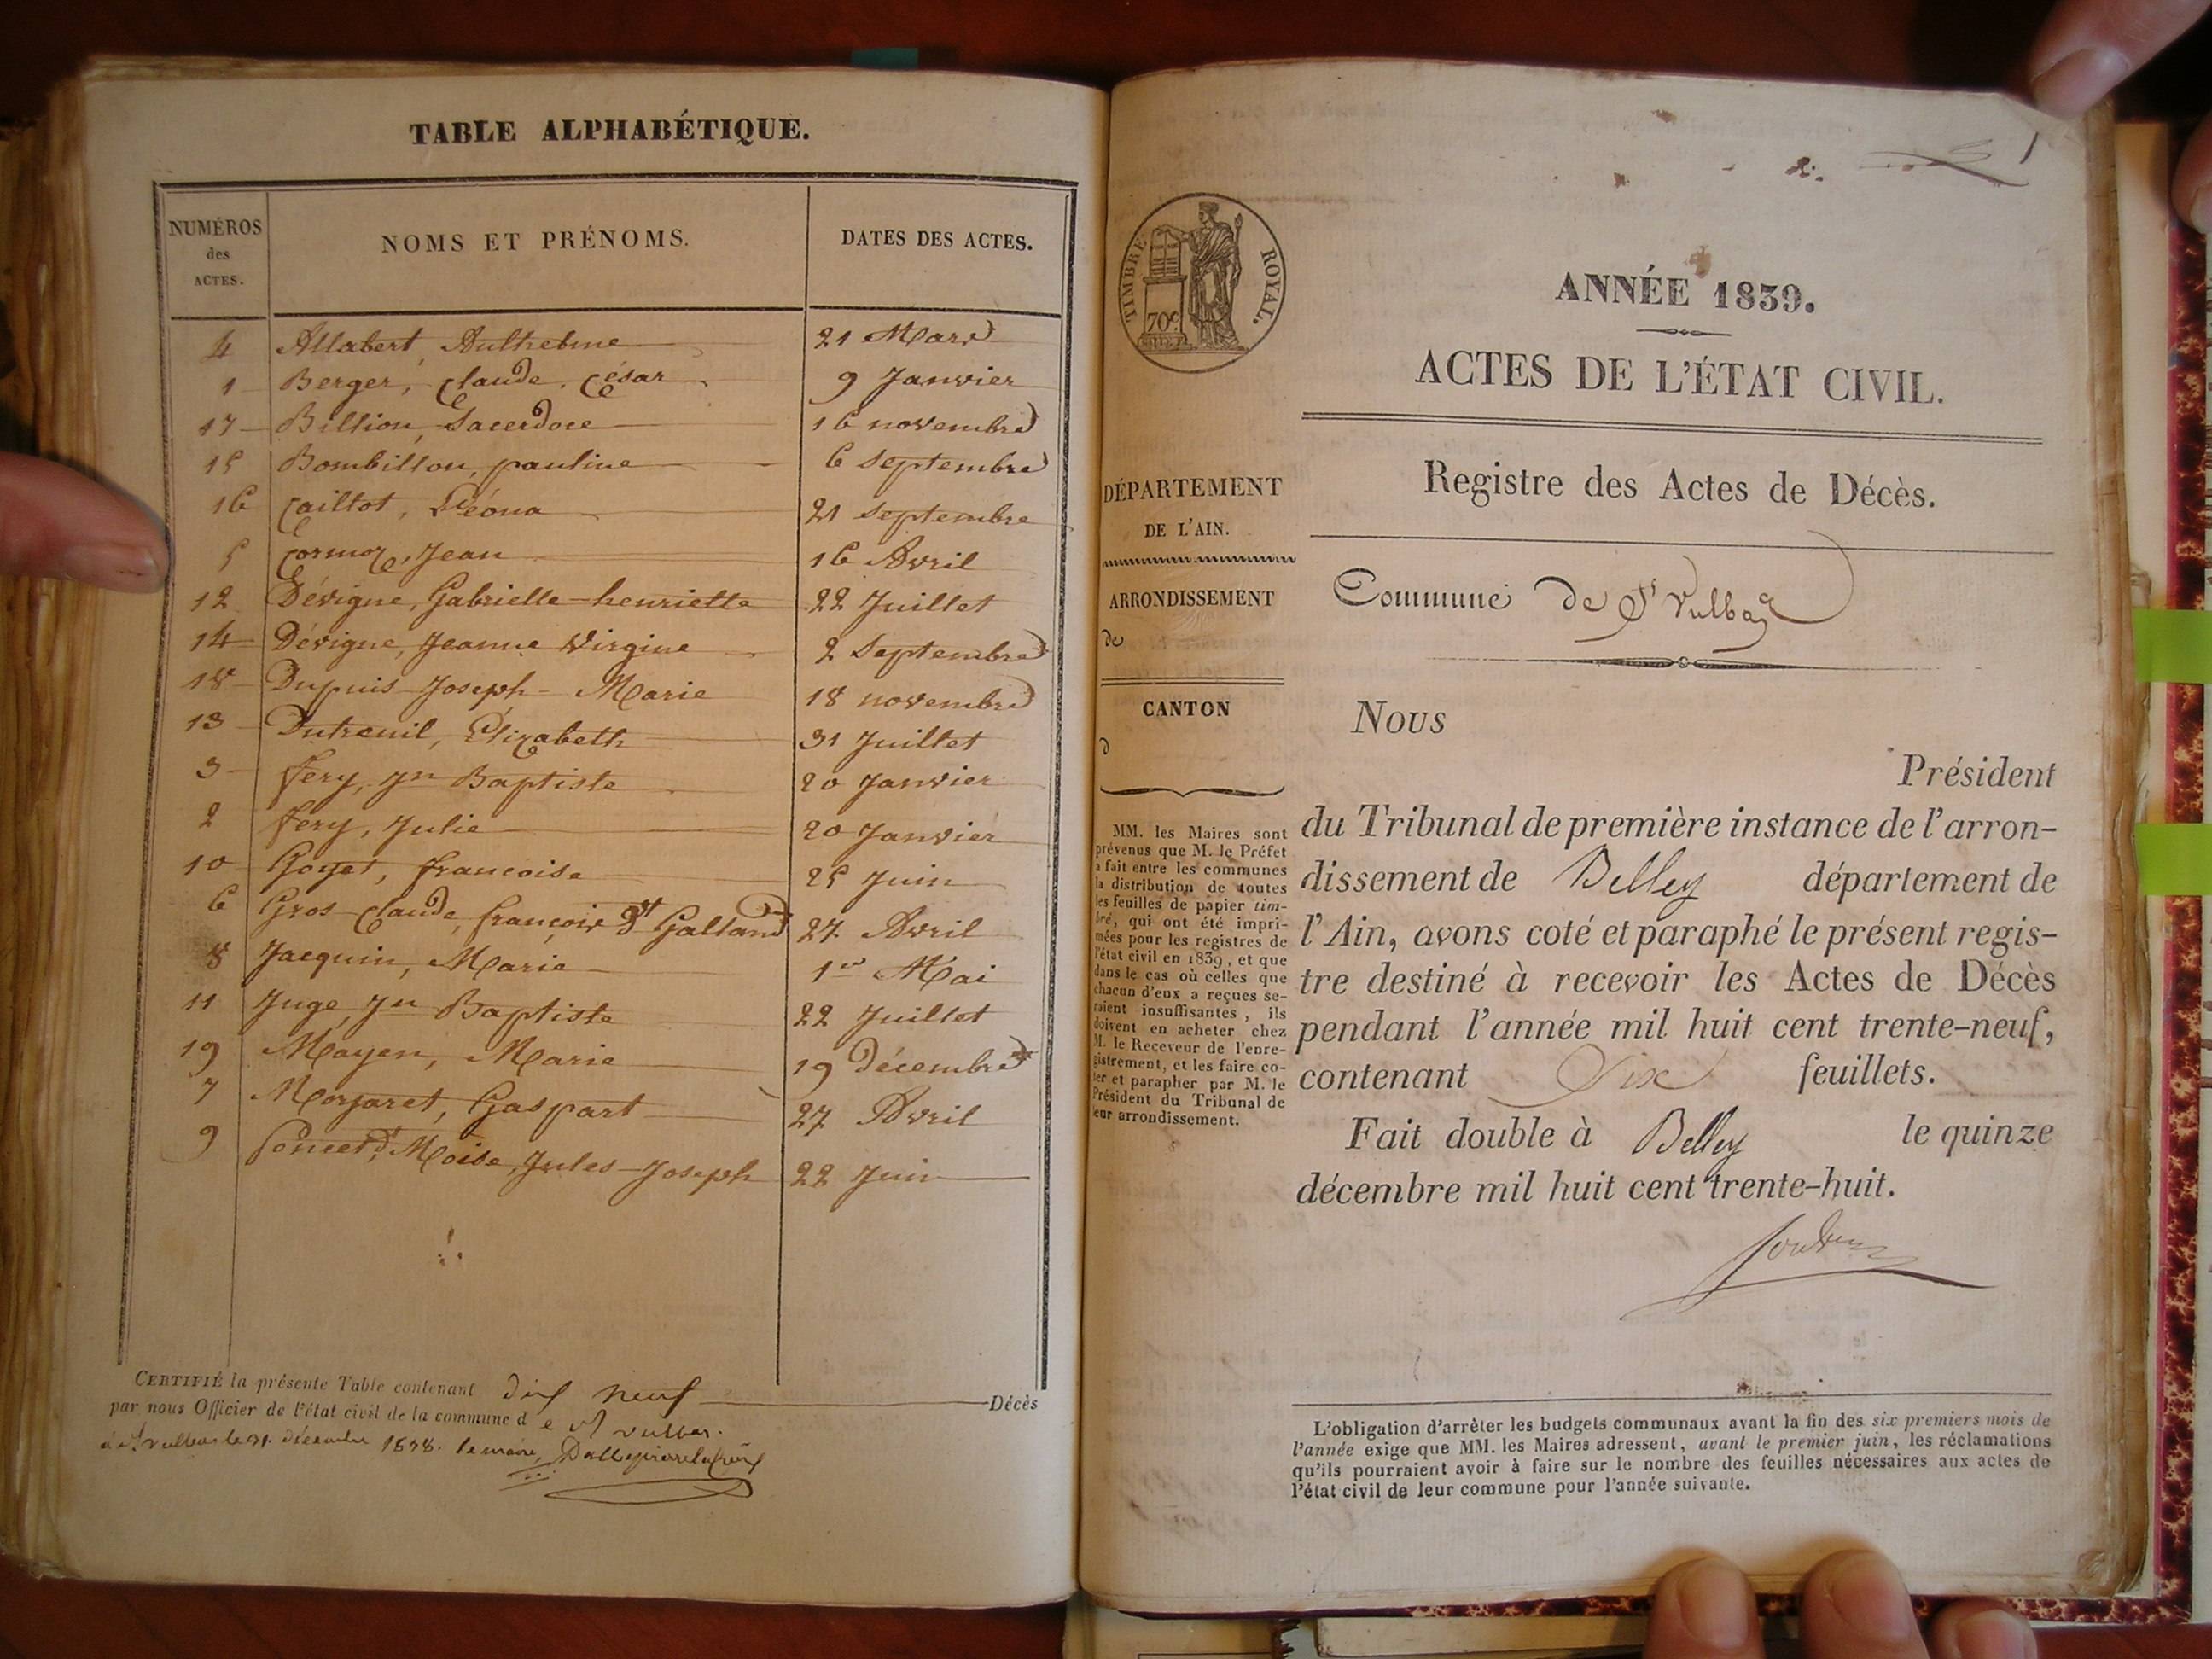 TABLE ALPHABÉTIQUE.
NUMÉROS
des
ACTES.
NOMS ET PRÉNOMS.
DATES DES ACTES.
4 Allabert, Anthelme 21 Mars
1 Berger, Claude, César 9 Janvier
17 Billion, Sacerdoce 16 novembre
15 Bombillon, pauline 6 Septembre
16 Caillot, Léona 21 Septembre
5 Cormoz, Jean 16 Avril
12 Dévigne, Gabrielle-henriette 22 Juillet
14 Dévigne, Jeanne Virgine 2 Septembre
18 Dupuis Joseph-Marie 18 novembre
13 Dutreuil, Élizabeth 31 Juillet
3 fery, Jn Baptiste 20 Janvier
2 fery, Julie 20 Janvier
10 Goyet, francoise 25 Juin
6 Gros Claude, françois dt Galland 27 Avril
8 Jacquin, Marie 1er Mai
11 Juge Jn Baptiste 22 Juillet
19 Mayen, Marie 19 décembre
7 Morgaret, Gaspart 27 Avril
9 Poncet, Moise, Jules-Joseph 22 Juin
CERTIFIÉ la présente Table contenant dix neuf Décès
par nous Officier de l'état civil de la commune de St vulbas.
à St vulbas le 31 décembre 1838. le maire,
1
TIMBRE ROYAL.
70c
ANNÉE 1839.
ACTES DE L'ÉTAT CIVIL.
Registre des Actes de Décès.
Commune de St Vulbas
DÉPARTEMENT
DE L'AIN.
ARRONDISSEMENT
de
CANTON
d
MM. les Maires sont
prévenus que M. le Préfet
a fait entre les communes
la distribution de toutes
les feuilles de papier tim-
bré, qui ont été impri-
mées pour les registres de
l'état civil en 1839, et que
dans le cas où celles que
chacun d'eux a reçues se-
raient insuffisantes, ils
doivent en acheter chez
M. le Receveur de l'enre-
gistrement, et les faire co-
ter et parapher par M. le
Président du Tribunal de
leur arrondissement.
Nous
Président
du Tribunal de première instance de l'arron-
dissement de Belley département de
l'Ain, avons coté et paraphé le présent regis-
tre destiné à recevoir les Actes de Décès
pendant l'année mil huit cent trente-neuf,
contenant Six feuillets.
Fait double à Belley le quinze
décembre mil huit cent trente-huit.
L'obligation d'arrêter les budgets communaux avant la fin des six premiers mois de
l'année exige que MM. les Maires adressent, avant le premier juin, les réclamations
qu'ils pourraient avoir à faire sur le nombre des feuilles nécessaires aux actes de
l'état civil de leur commune pour l'année suivante.